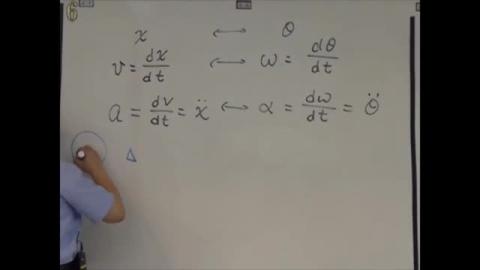 x ↔ θ
v = dx/dt ↔ ω = dθ/dt
a = dv/dt = ẍ ↔ α = dω/dt = θ̈
Δ